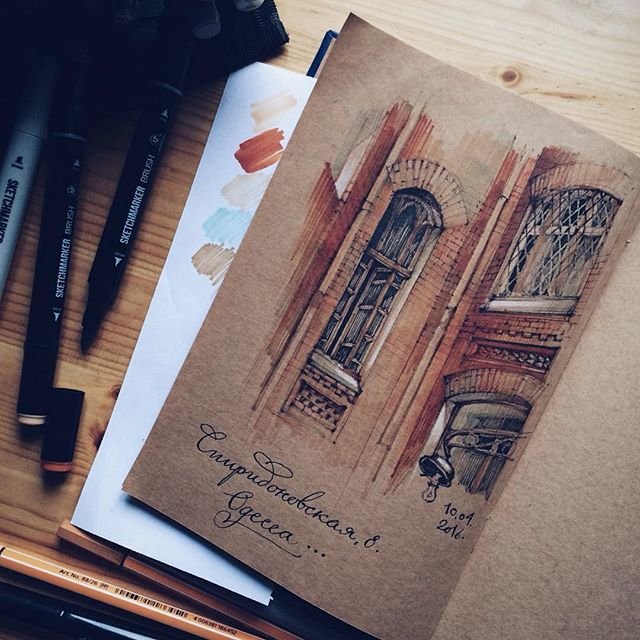 SKETCHMARKER
SKETCHMARKER BRUSH
SKETCHMARKER BRUSH
Спиридоновская, 8.
Одесса ...
10.01.
2016.
Art. No. 88/26
4 006381 186452